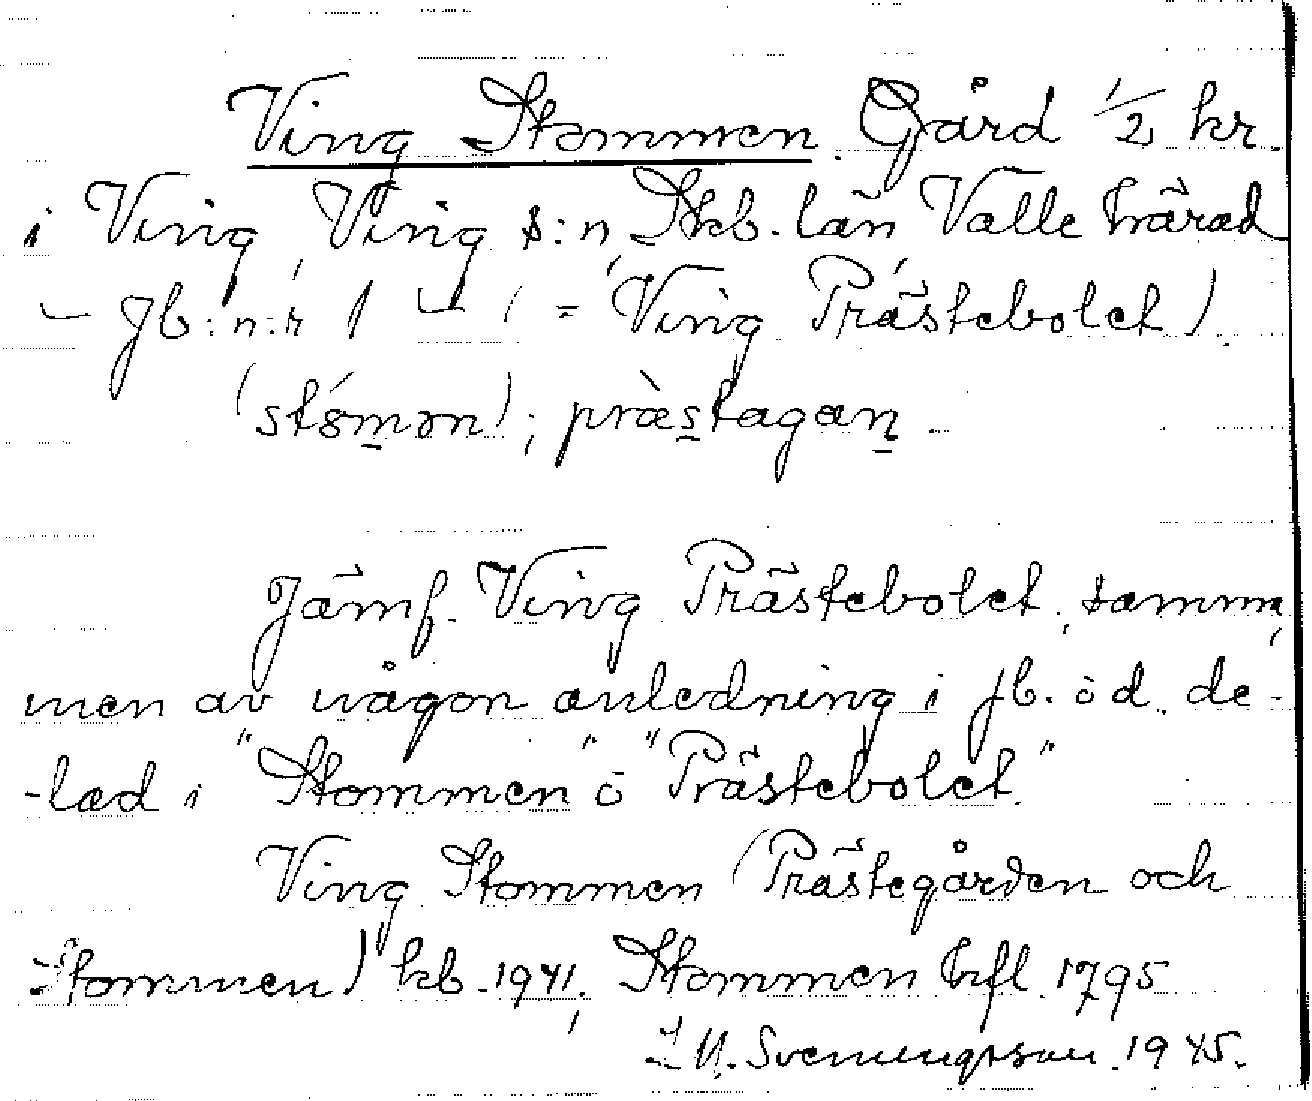 Ving Stommen Gård 1/2 kr.
i Ving, Ving s:n, Skb. län Valle härad
Jb:n:r 1 (= Ving Prästebolet).
(stómǝn); præ̀stagaṉ
Jämf. Ving Prästebolet, samma,
men av någon anledning i jb. o d. de-
-lad i "Stommen" o "Prästebolet"
Ving Stommen (Prästegården och
Stommen) kb. 1941; Stommen hfl. 1795
Svenningsson. 1945.